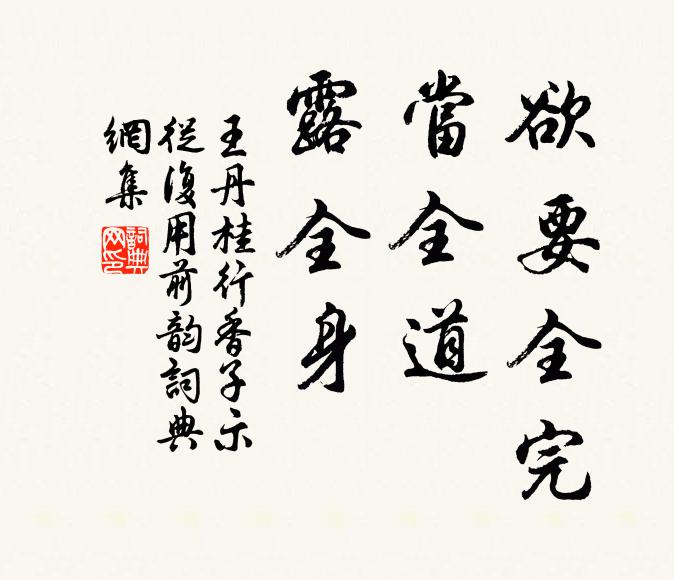 欲要全完
當全道
露全身
王丹桂行香子示
從復用前韵詞典
網集
詞典
网印